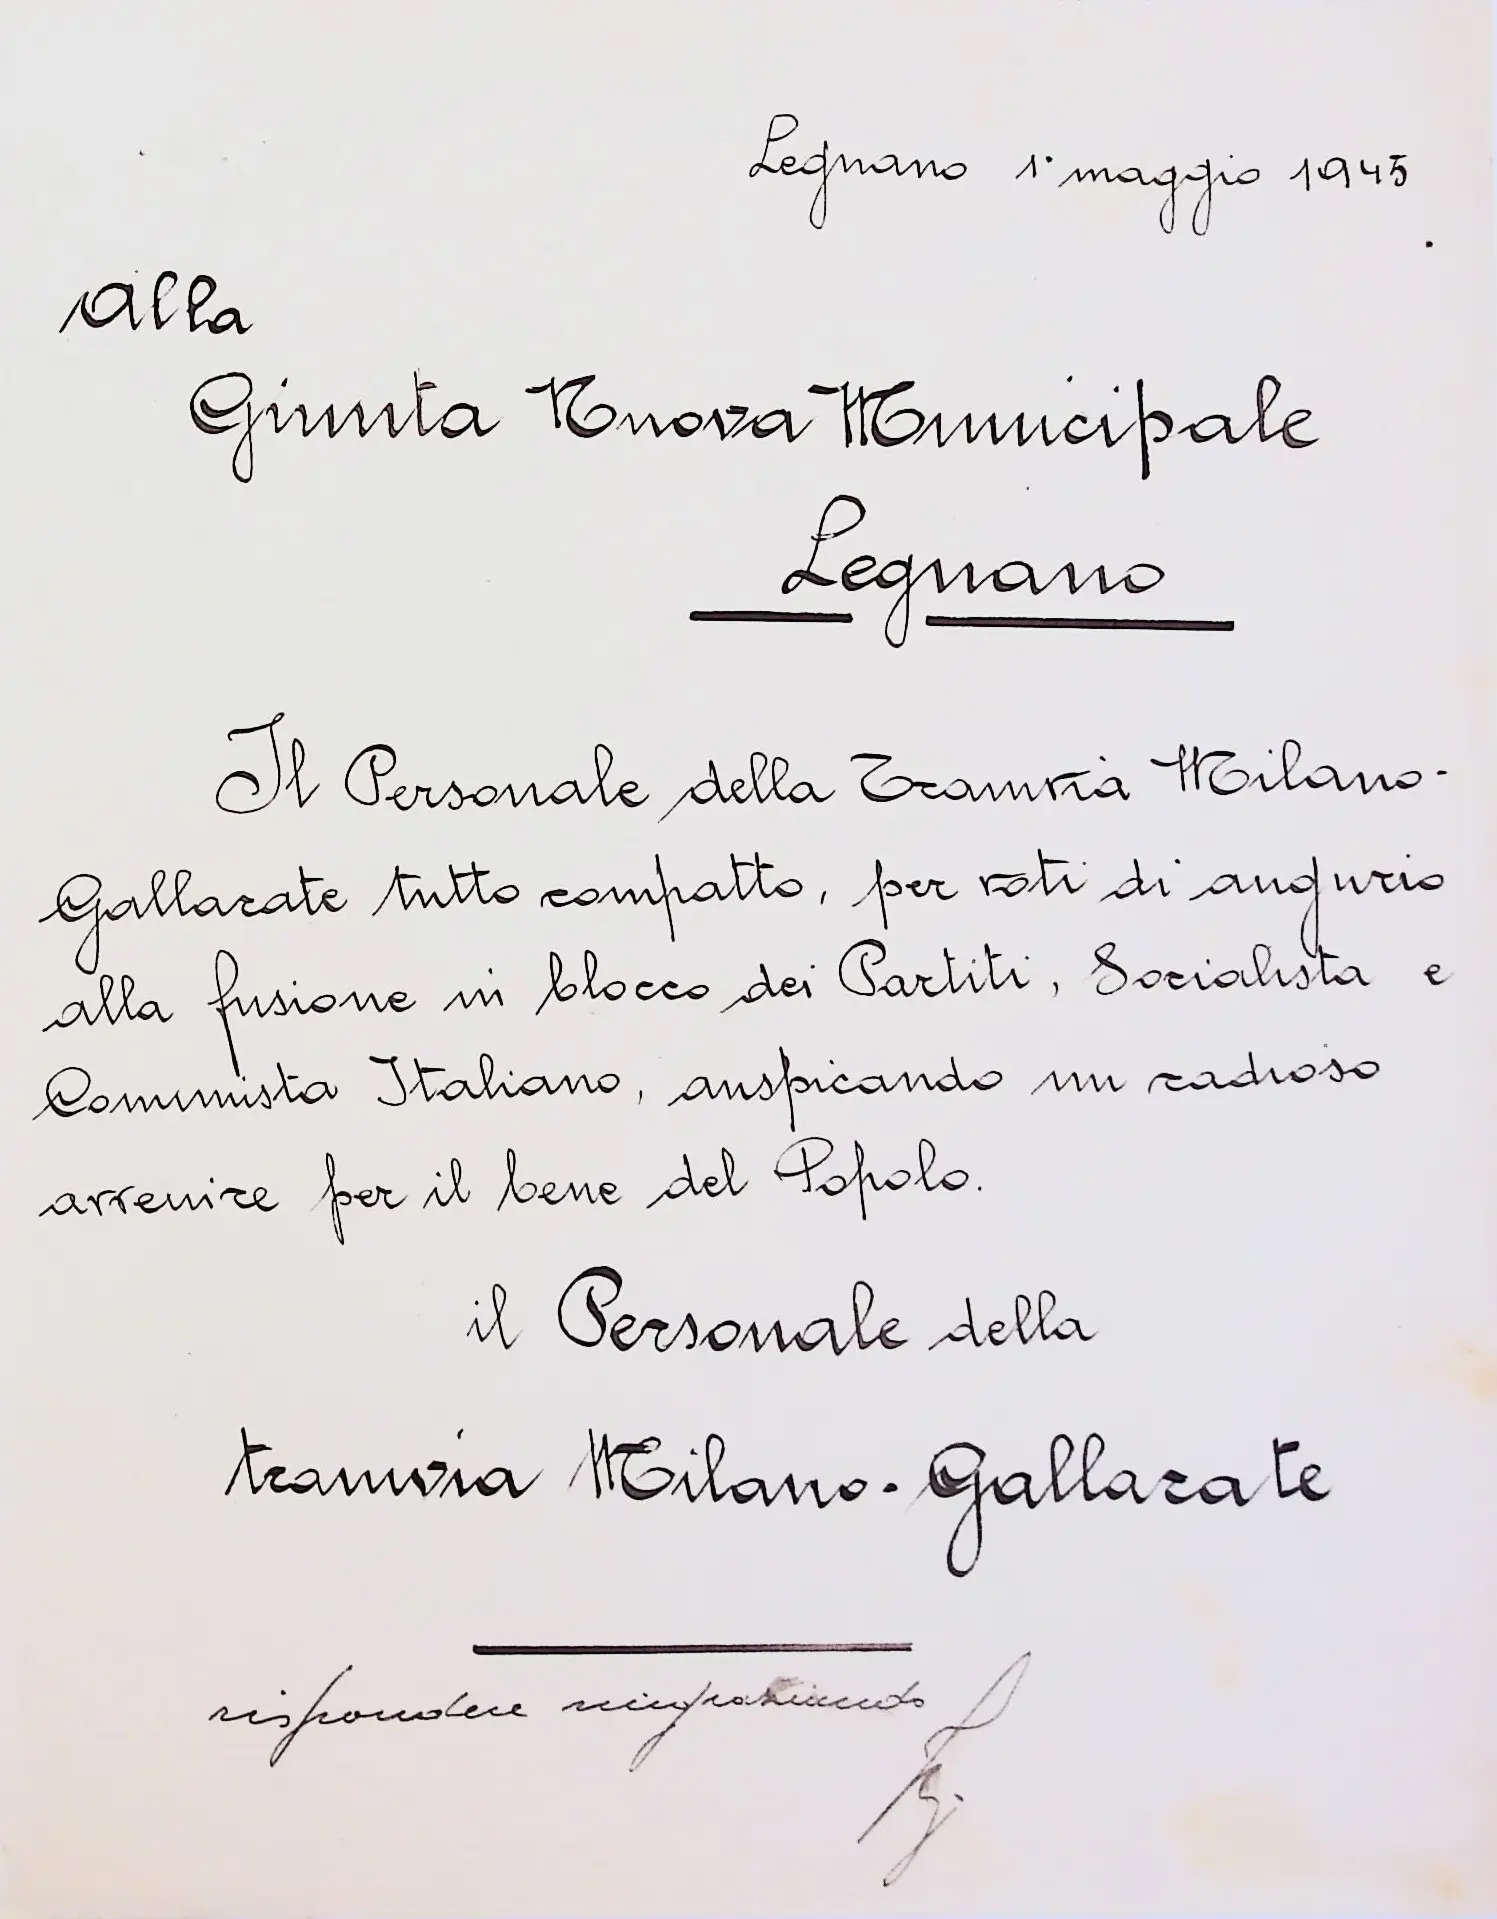 Legnano 1° maggio 1945
Alla
Giunta Nuova Municipale
Legnano
Il Personale della Tramvia Milano-
Gallarate tutto compatto, per voti di augurio
alla fusione in blocco dei Partiti, Socialista e
Comunista Italiano, auspicando un radioso
avvenire per il bene del Popolo.
il Personale della
tramvia Milano-Gallarate
rispondere ringraziando